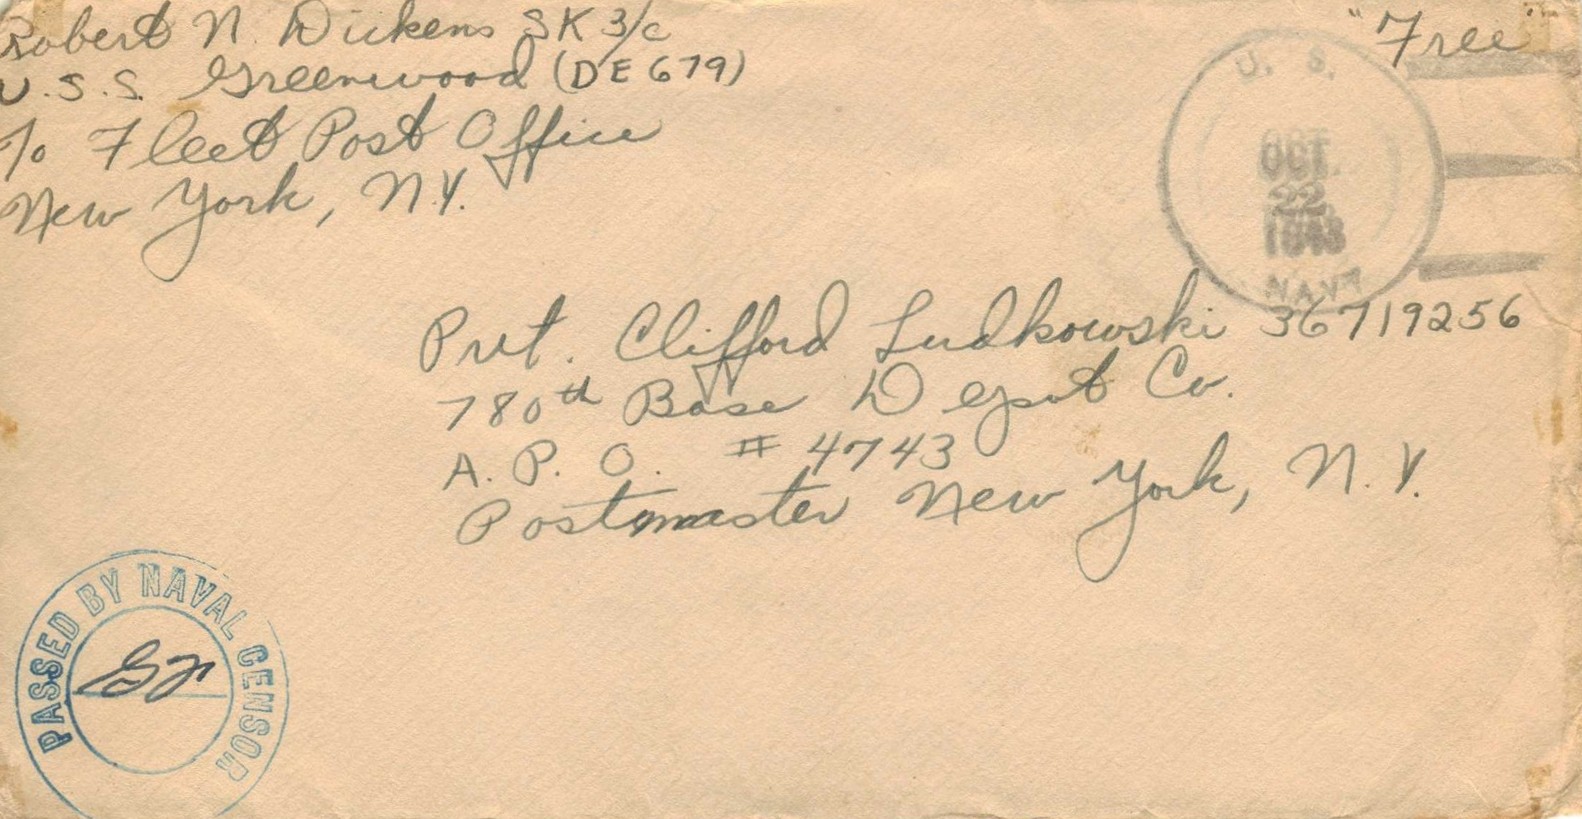 Robert N. Dickens SK 3/c
U.S.S. Greenwood (DE 679)
℅ Fleet Post Office
New York, N.Y.
"Free"
U. S.
OCT.
22
1943
NAVY
Pvt. Clifford Ludkowski 36719256
780th Base Depot Co.
A. P. O. # 4743
Postmaster New York, N. Y.
PASSED BY NAVAL CENSOR